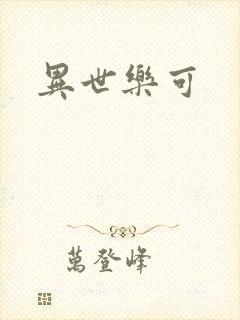 異世樂可
萬登峰